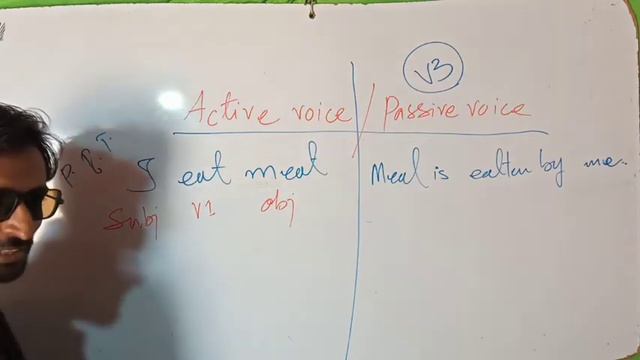 V3
Active voice / Passive voice
I eat meat Meal is eaten by me.
Subj V1 obj